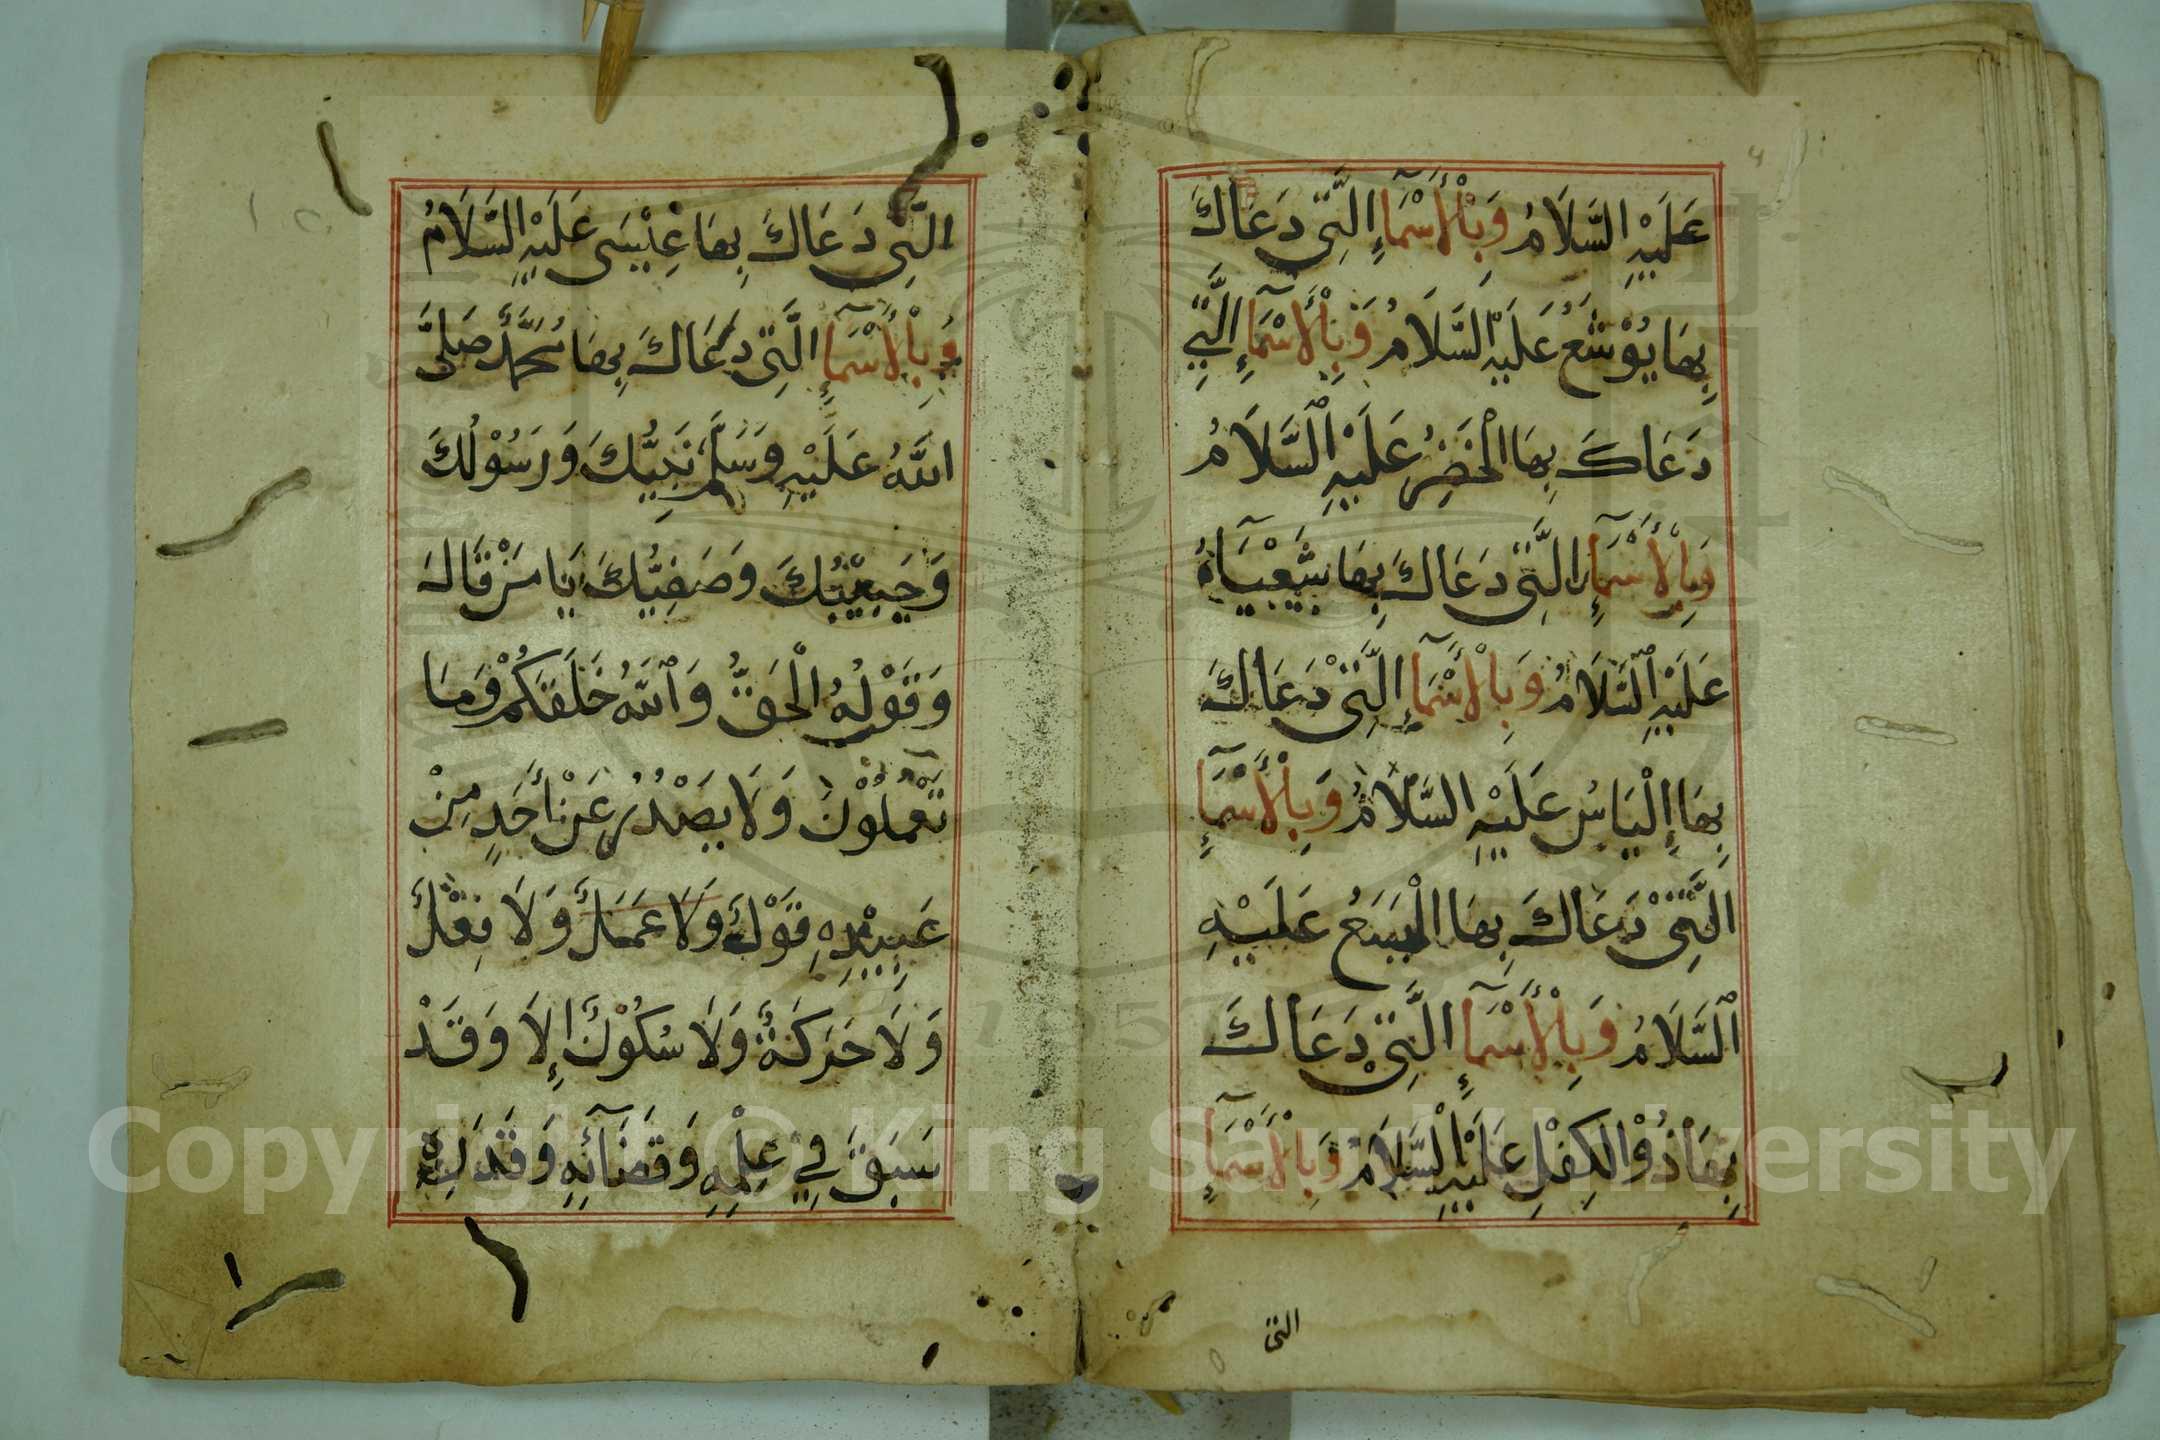 عَلَيْهِ السَّلَامُ وَبِالْأَسْمَآءِ الَّتِي دَعَاكَ
بِهَا يُوْشَعُ عَلَيْهِ السَّلَامُ وَبِالْأَسْمَآءِ الَّتِي
دَعَاكَ بِهَا الْخَضِرُ عَلَيْهِ السَّلَامُ
وَبِالْأَسْمَآءِ الَّتِي دَعَاكَ بِهَا شَعْيَاءُ
عَلَيْهِ السَّلَامُ وَبِالْأَسْمَآءِ الَّتِي دَعَاكَ
بِهَا إِلْيَاسُ عَلَيْهِ السَّلَامُ وَبِالْأَسْمَآءِ
الَّتِي دَعَاكَ بِهَا الْيَسَعُ عَلَيْهِ
السَّلَامُ وَبِالْأَسْمَآءِ الَّتِي دَعَاكَ
بِهَا ذُوْالْكِفْلِ عَلَيْهِ السَّلَامُ وَبِالْأَسْمَآءِ
التى
الَّتِي دَعَاكَ بِهَا عِيْسَى عَلَيْهِ السَّلَامُ
وَبِالْأَسْمَآءِ الَّتِي دَعَاكَ بِهَا مُحَمَّدٌ صَلَّى
اللَّهُ عَلَيْهِ وَسَلَّمَ نَبِيُّكَ وَرَسُوْلُكَ
وَحَبِيْبُكَ وَصَفِيُّكَ يَا مَنْ قَالَ
وَقَوْلُهُ الْحَقُّ وَاللَّهُ خَلَقَكُمْ وَمَا
تَعْمَلُوْنَ وَلَا يَصْدُرُ عَنْ أَحَدٍ مِنْ
عَبِيْدِهِ قَوْلٌ وَلَا عَمَلٌ وَلَا فِعْلٌ
وَلَا حَرَكَةٌ وَلَا سُكُوْنٌ إِلَّا وَقَدْ
سَبَقَ فِي عِلْمِهِ وَقَضَآئِهِ وَقَدَرِهِ
Copyright © King Saud University